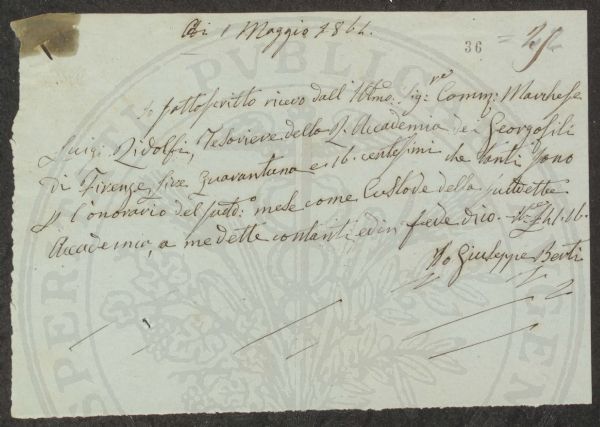 Di 1 Maggio 1861.
36
Io sottoscritto ricevo dall' Illmo. Sig:re Comm: Marchese
Luigi Ridolfi, Tesoriere della R. Accademia de' Georgofili
di Firenze, Lire quarantuna e 16. centesimi che tanti sono
p l'onorario del sudd:o mese come Custode della suddetta
Accademia, a me dette contanti, ed in fede dico. £ 41. 16.
Io Giuseppe Berti
PUBLIC